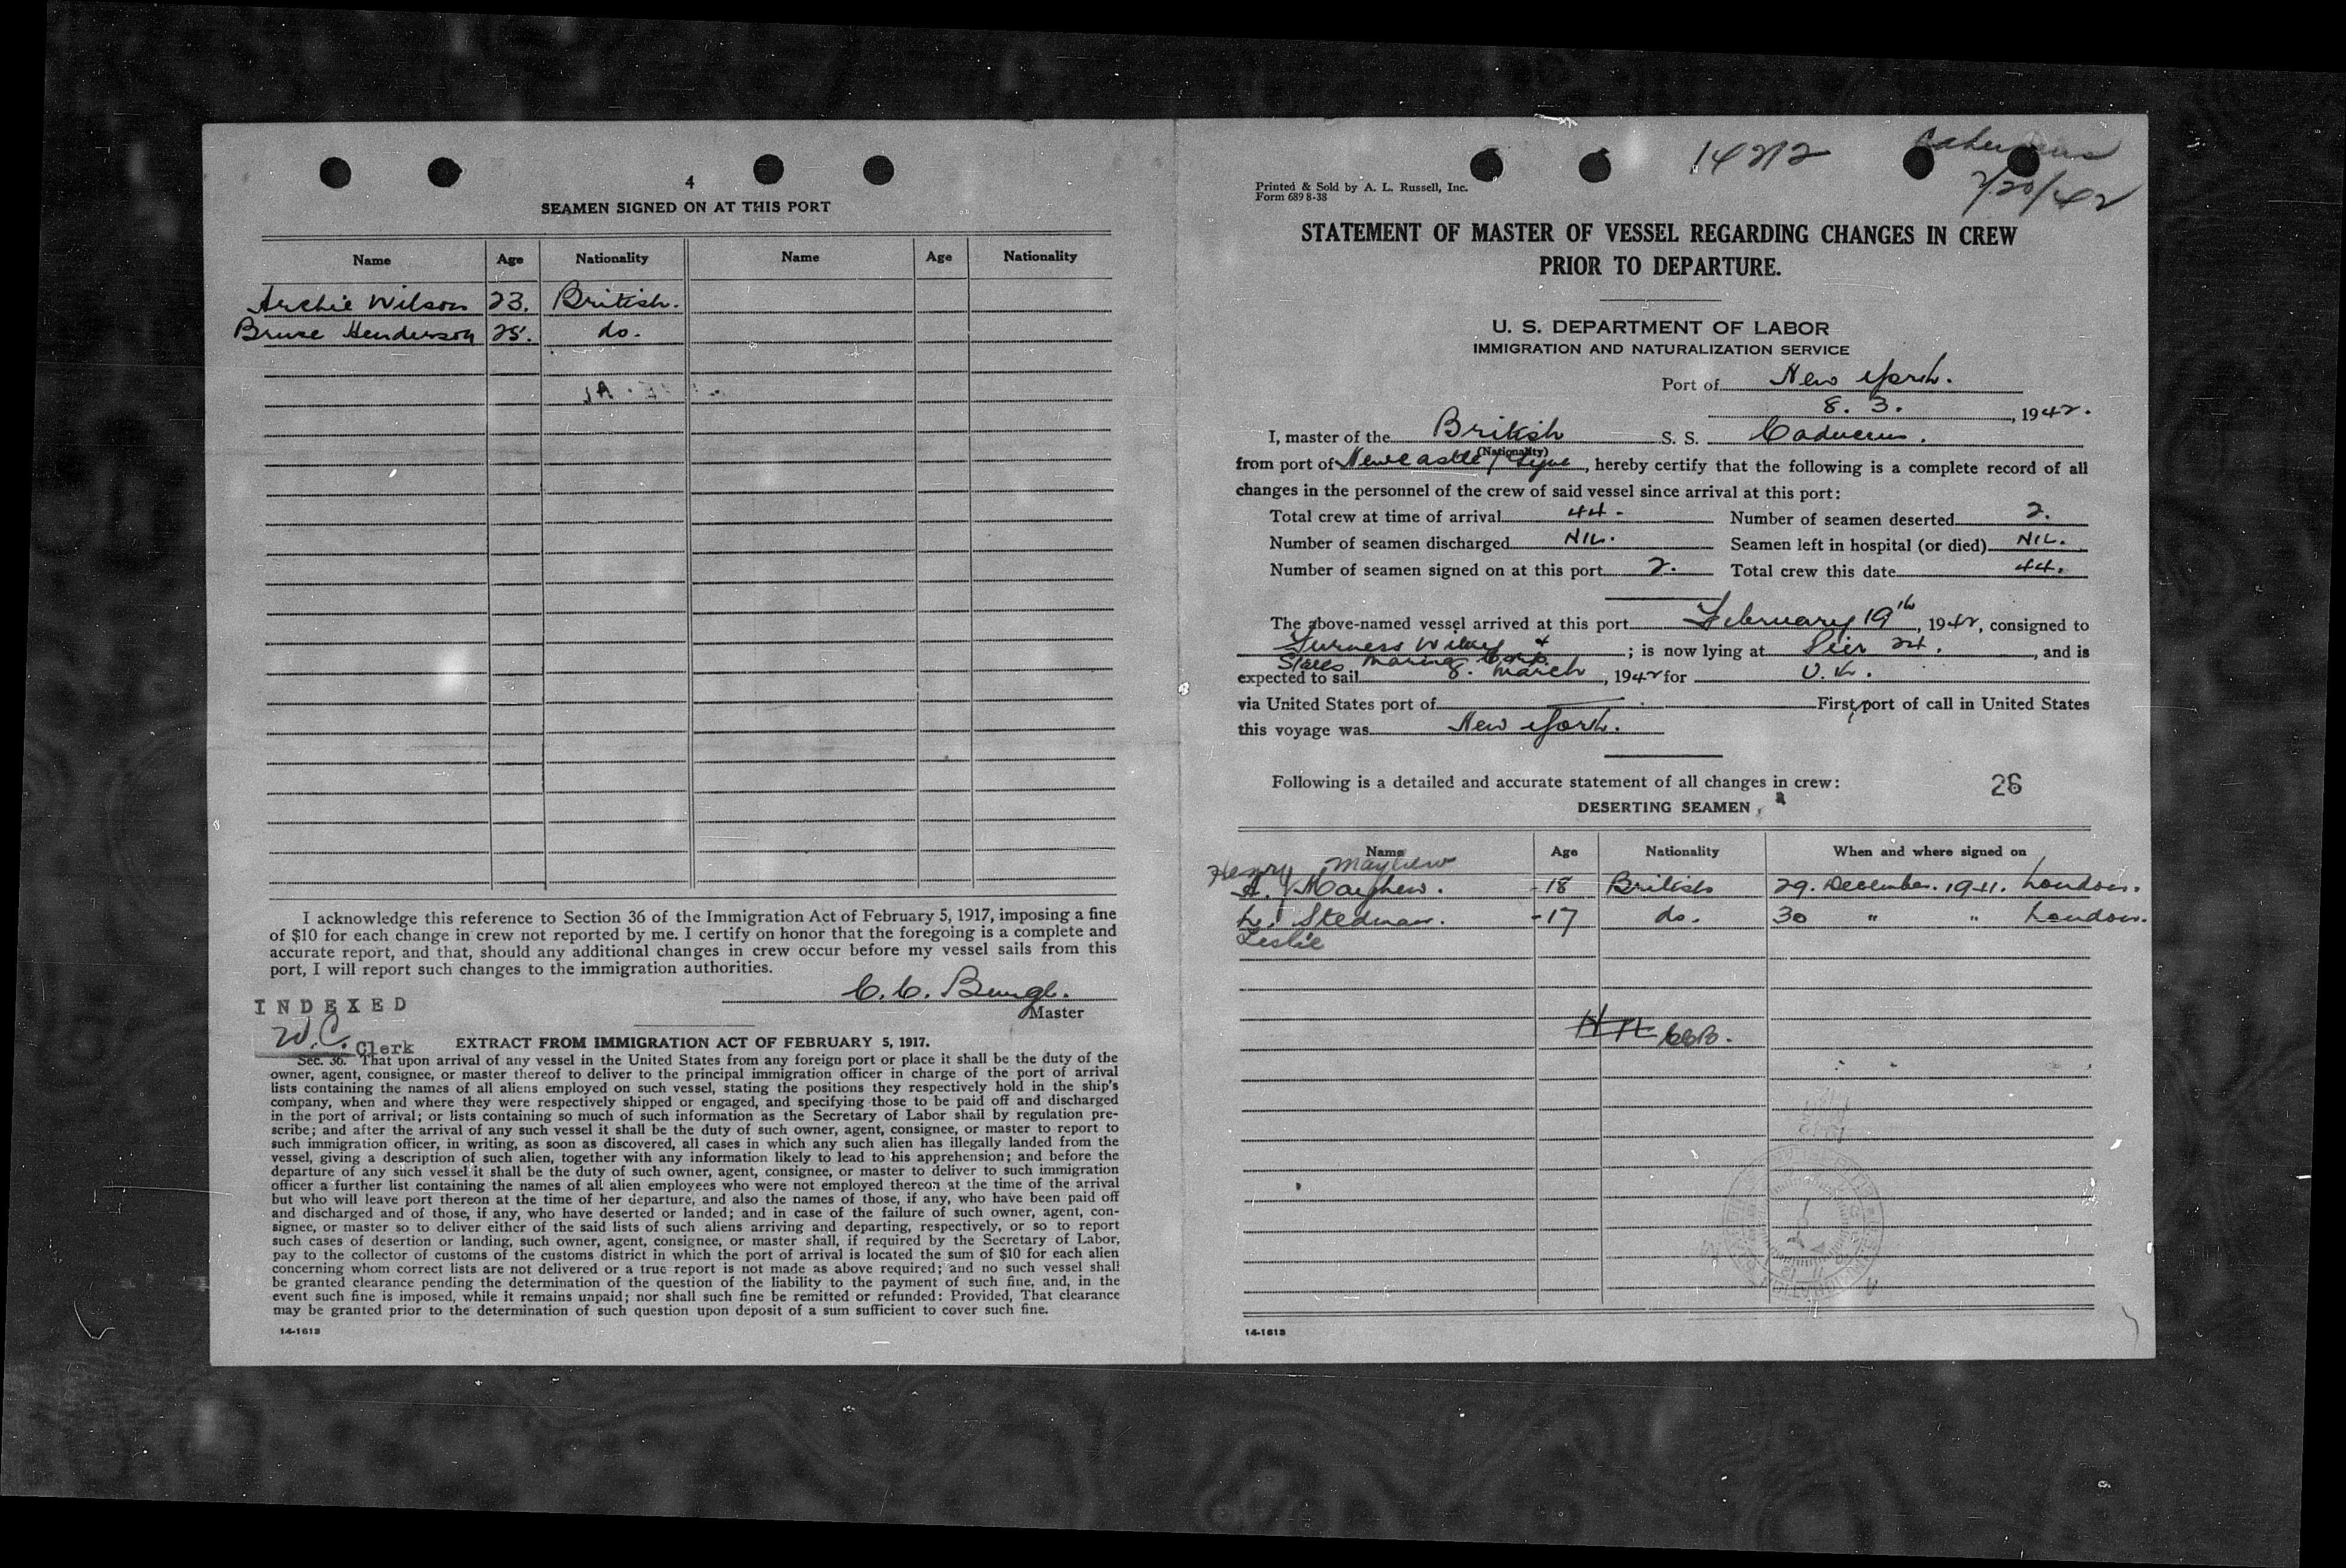 4
SEAMEN SIGNED ON AT THIS PORT
Name Age Nationality Name Age Nationality
Archie Wilson 23. British.
Bruce Henderson 25. do.
I acknowledge this reference to Section 36 of the Immigration Act of February 5, 1917, imposing a fine
of $10 for each change in crew not reported by me. I certify on honor that the foregoing is a complete and
accurate report, and that, should any additional changes in crew occur before my vessel sails from this
port, I will report such changes to the immigration authorities.
C. C.
Master
INDEXED
W.C. Clerk
EXTRACT FROM IMMIGRATION ACT OF FEBRUARY 5, 1917.
Sec. 36. That upon arrival of any vessel in the United States from any foreign port or place it shall be the duty of the
owner, agent, consignee, or master thereof to deliver to the principal immigration officer in charge of the port of arrival
lists containing the names of all aliens employed on such vessel, stating the positions they respectively hold in the ship's
company, when and where they were respectively shipped or engaged, and specifying those to be paid off and discharged
in the port of arrival; or lists containing so much of such information as the Secretary of Labor shall by regulation pre-
scribe; and after the arrival of any such vessel it shall be the duty of such owner, agent, consignee, or master to report to
such immigration officer, in writing, as soon as discovered, all cases in which any such alien has illegally landed from the
vessel, giving a description of such alien, together with any information likely to lead to his apprehension; and before the
departure of any such vessel it shall be the duty of such owner, agent, consignee, or master to deliver to such immigration
officer a further list containing the names of all alien employees who were not employed thereon at the time of the arrival
but who will leave port thereon at the time of her departure, and also the names of those, if any, who have been paid off
and discharged and of those, if any, who have deserted or landed; and in case of the failure of such owner, agent, con-
signee, or master so to deliver either of the said lists of such aliens arriving and departing, respectively, or so to report
such cases of desertion or landing, such owner, agent, consignee, or master shall, if required by the Secretary of Labor,
pay to the collector of customs of the customs district in which the port of arrival is located the sum of $10 for each alien
concerning whom correct lists are not delivered or a true report is not made as above required; and no such vessel shall
be granted clearance pending the determination of the question of the liability to the payment of such fine, and, in the
event such fine is imposed, while it remains unpaid; nor shall such fine be remitted or refunded: Provided, That clearance
may be granted prior to the determination of such question upon deposit of a sum sufficient to cover such fine.
14-1613
14212
2/20/42
Printed & Sold by A. L. Russell, Inc.
Form 689 8-38
STATEMENT OF MASTER OF VESSEL REGARDING CHANGES IN CREW
PRIOR TO DEPARTURE.
U. S. DEPARTMENT OF LABOR
IMMIGRATION AND NATURALIZATION SERVICE
Port of New York.
8. 3. , 1942.
I, master of the British S. S. Caduceus.
(Nationality)
from port of Newcastle / Tyne, hereby certify that the following is a complete record of all
changes in the personnel of the crew of said vessel since arrival at this port:
Total crew at time of arrival 44. Number of seamen deserted 2.
Number of seamen discharged NIL. Seamen left in hospital (or died) NIL.
Number of seamen signed on at this port 2. Total crew this date 44.
The above-named vessel arrived at this port February 19th, 1942, consigned to
Furness Withy & ; is now lying at Pier 24. , and is
States Marine Corp.
expected to sail 8. March, 1942 for U.K.
via United States port of First port of call in United States
this voyage was New York.
Following is a detailed and accurate statement of all changes in crew: 26
DESERTING SEAMEN
Name Age Nationality When and where signed on
Henry Mayhew
H. Mayhew. 18 British 29. December. 1941. London.
L. Stedman. 17 do. 30 " " London.
Leslie
14-1613